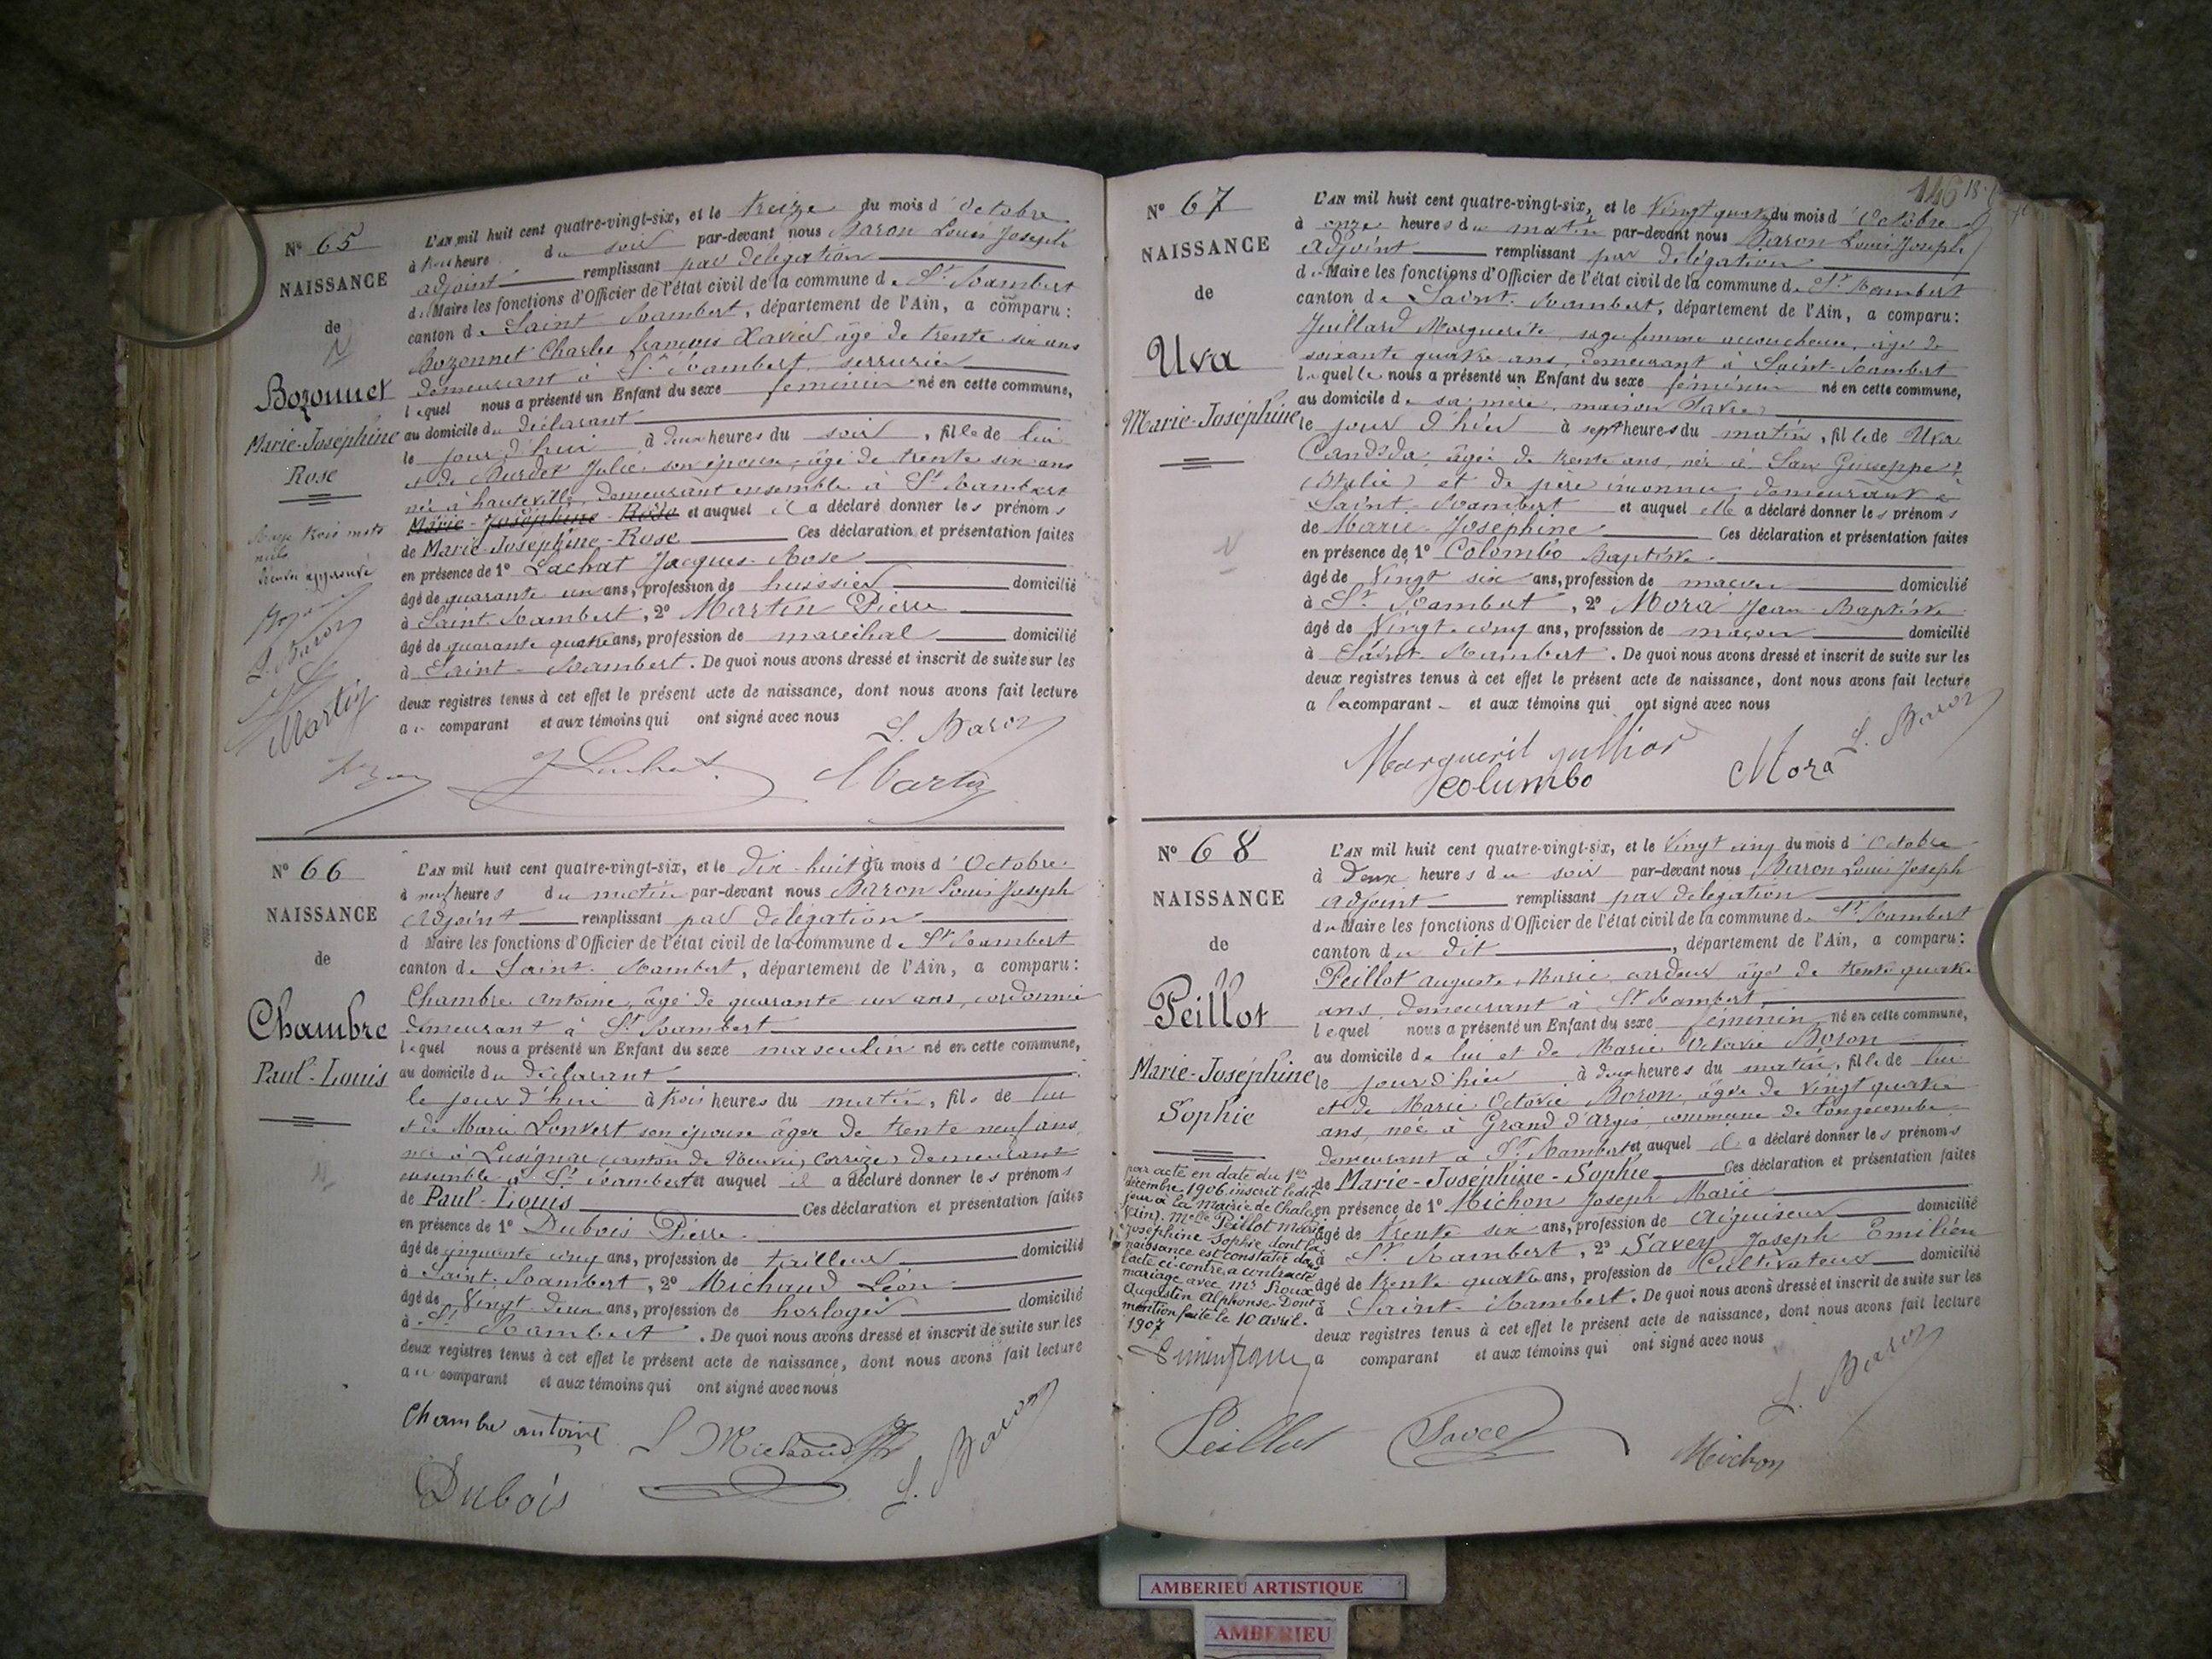 N° 65
NAISSANCE
de
Bozonnet
Marie-Joséphine
Rose
Rayé trois mots
nuls
approuvé
L. Baron
Martin
L'AN mil huit cent quatre-vingt-six, et le treize du mois d'Octobre
à heure du soir par-devant nous Baron Louis Joseph
adjoint remplissant par délégation
du Maire les fonctions d'Officier de l'état civil de la commune de St Rambert
canton de Saint-Rambert, département de l'Ain, a comparu:
Bozonnet Charles françois Xavier âgé de trente six ans
demeurant à St Rambert, serrurier
lequel nous a présenté un Enfant du sexe féminin né en cette commune,
au domicile du déclarant
le jour d'hui à deux heures du soir, fille de lui
et de Burdet Julie son épouse, âgé de trente six ans
née à hauteville, demeurant ensemble à St Rambert
Marie-Joséphine-Rose et auquel il a déclaré donner les prénoms
de Marie-Joséphine-Rose Ces déclaration et présentation faites
en présence de 1° Lachat Jacques-Rose
âgé de quarante un ans, profession de huissier domicilié
à Saint-Rambert, 2° Martin Pierre
âgé de quarante quatre ans, profession de maréchal domicilié
à Saint-Rambert. De quoi nous avons dressé et inscrit de suite sur les
deux registres tenus à cet effet le présent acte de naissance, dont nous avons fait lecture
au comparant et aux témoins qui ont signé avec nous
L. Baron
J Lachat
Martin
N° 66
NAISSANCE
de
Chambre
Paul-Louis
L'AN mil huit cent quatre-vingt-six, et le dix-huit du mois d'Octobre
à neuf heures du matin par-devant nous Baron Louis Joseph
Adjoint remplissant par délégation
d Maire les fonctions d'Officier de l'état civil de la commune de St Rambert
canton de Saint-Rambert, département de l'Ain, a comparu:
Chambre Antoine, âgé de quarante un ans, cordonnier
demeurant à St Rambert
lequel nous a présenté un Enfant du sexe masculin né en cette commune,
au domicile du déclarant
le jour d'hui à trois heures du matin, fils de lui
et de Marie Lonvert son épouse âgée de trente neuf ans,
née à Lusignac (canton de Corrèze) demeurant
ensemble à St Rambert et auquel il a déclaré donner les prénoms
de Paul-Louis Ces déclaration et présentation faites
en présence de 1° Dubois Pierre
âgé de cinquante cinq ans, profession de tailleur domicilié
à Saint-Rambert, 2° Michaud Léon
âgé de Vingt deux ans, profession de horloger domicilié
à St Rambert. De quoi nous avons dressé et inscrit de suite sur les
deux registres tenus à cet effet le présent acte de naissance, dont nous avons fait lecture
au comparant et aux témoins qui ont signé avec nous
Chambre antoine
L Michaud
L. Baron
Dubois
146
N° 67
NAISSANCE
de
Uva
Marie-Joséphine
L'AN mil huit cent quatre-vingt-six, et le Vingt quatre du mois d'Octobre
à onze heures du matin par-devant nous Baron Louis Joseph
Adjoint remplissant par délégation
du Maire les fonctions d'Officier de l'état civil de la commune de St Rambert
canton de Saint-Rambert, département de l'Ain, a comparu:
Juillard Marguerite, sage femme accoucheuse, âgée de
soixante quatre ans, demeurant à Saint-Rambert
laquelle nous a présenté un Enfant du sexe féminin né en cette commune,
au domicile de sa mère, maison Favre
le jour d'hier à sept heures du matin, fille de Uva
Candida, âgée de trente ans, née à San Giuseppe
(Italie) et de père inconnu, demeurant à
Saint-Rambert et auquel elle a déclaré donner les prénoms
de Marie-Joséphine Ces déclaration et présentation faites
en présence de 1° Colombo Baptiste
âgé de Vingt six ans, profession de maçon domicilié
à St Rambert, 2° Mora Jean-Baptiste
âgé de Vingt-cinq ans, profession de maçon domicilié
à Saint-Rambert. De quoi nous avons dressé et inscrit de suite sur les
deux registres tenus à cet effet le présent acte de naissance, dont nous avons fait lecture
a la comparant et aux témoins qui ont signé avec nous
L. Baron
Marguerit
columbo
Mora
N° 68
NAISSANCE
de
Peillot
Marie-Joséphine
Sophie
par acte en date du 1er
décembre 1906 inscrit ledit
jour à la Mairie de Chaley
(Ain). Melle Peillot Marie
Joséphine Sophie dont la
naissance est constatée dans
l'acte ci-contre a contracté
mariage avec Mr Siroux
Augustin Alphonse. Dont
mention faite le 10 avril.
1907
L'AN mil huit cent quatre-vingt-six, et le Vingt cinq du mois d'Octobre
à deux heures du soir par-devant nous Baron Louis Joseph
adjoint remplissant par délégation
du Maire les fonctions d'Officier de l'état civil de la commune de St Rambert
canton du dit, département de l'Ain, a comparu:
Peillot Auguste Marie, cardeur âgé de trente quatre
ans, demeurant à St Rambert
lequel nous a présenté un Enfant du sexe féminin né en cette commune,
au domicile de lui et de Marie Octavie Boron
le jour d'hier à deux heures du matin, fille de lui
et de Marie Octavie Boron, âgée de Vingt quatre
ans, née à Grand d'Argis, commune de Longecombe
demeurant à St Rambert et auquel il a déclaré donner les prénoms
de Marie-Joséphine-Sophie Ces déclaration et présentation faites
en présence de 1° Michon Joseph Marie
âgé de trente six ans, profession de Aiguiseur domicilié
à St Rambert, 2° Savey Joseph Emilien
âgé de trente quatre ans, profession de Cultivateur domicilié
à Saint-Rambert. De quoi nous avons dressé et inscrit de suite sur les
deux registres tenus à cet effet le présent acte de naissance, dont nous avons fait lecture
a comparant et aux témoins qui ont signé avec nous
L. Baron
Peillot
Savey
Michon
AMBERIEU ARTISTIQUE
AMBERIEU